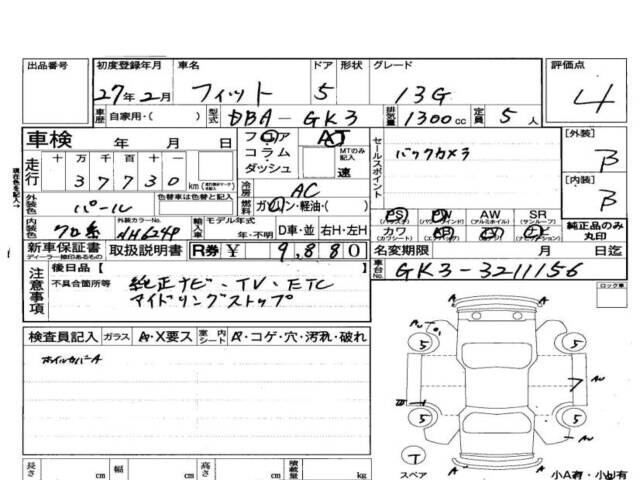 出品番号 初度登録年月 車名 ドア 形状 グレード 評価点
27年2月 フィット 5 13G 4
車歴 自家用・( ) 型式 DBA-GK3 排気量 1300cc 定員 5人
車検 年 月 日 フロア AT セールスポイント [外装]
走行 十 万 千 百 十 コラム MTのみ記入 バックカメラ B
37730 km ダッシュ 速
現在色を記入→ 外装色 パール 色替車は色替と記入 冷房 AC [内装]
燃料 ガソリン・軽油・( ) B
内装色 クロ系 外装カラーNo. 輸入車 モデル年式 PS PW AW SR
年・不明 D車・並 右H・左H カワ 純正品のみ丸印
新車保証書 取扱説明書 R券 ¥ 9,880 名変期限 月 日迄
ディーラー捺印あるもの
車台No. GK3-3211156
注意事項 後日品[ ]
不具合箇所等 純正ナビ・TV・ETC
アイドリングストップ
ロック車
検査員記入 ガラス A・X要ス 室内シート A・コゲ・穴・汚れ・破れ
ホイルカバーA
5 5
5 5
T
スペア 小A有・小U有
長さ cm 幅 cm 高さ cm 積載量 kg